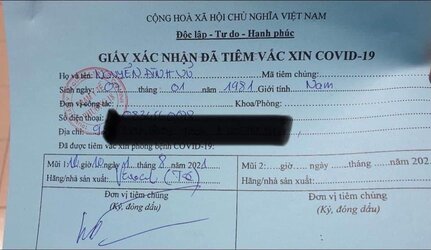 CỘNG HOÀ XÃ HỘI CHỦ NGHĨA VIỆT NAM
Độc lập - Tự do - Hạnh phúc
GIẤY XÁC NHẬN ĐÃ TIÊM VẮC XIN COVID-19
Họ và tên: NGUYỄN ĐÌNH VŨ Mã tiêm chủng:
Sinh ngày: 09 tháng 01 năm 1981 Giới tính Nam
Đơn vị công tác: Khoa/Phòng:
Số điện thoại:
Địa chỉ:
Đã được tiêm vắc xin phòng bệnh COVID-19:
Mũi 1: giờ 10 ngày 1 tháng 8 năm 2021 Mũi 2: giờ..... ngày tháng năm 202
Hãng/nhà sản xuất: Hãng/nhà sản xuất:
Đơn vị tiêm chủng Đơn vị tiêm chủng
(Ký, đóng dấu) (Ký, đóng dấu)